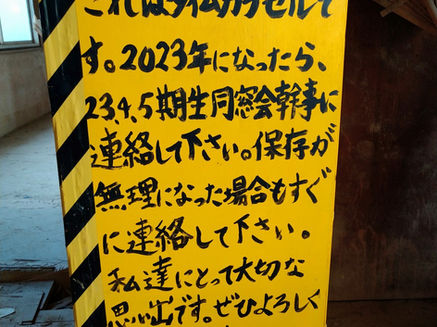 これはタイムカプセルで
す。2023年になったら、
23.4.5期生同窓会幹事に
連絡して下さい。保存が
無理になった場合もすぐ
に連絡して下さい。
私達にとって大切な
思い出です。ぜひよろしく